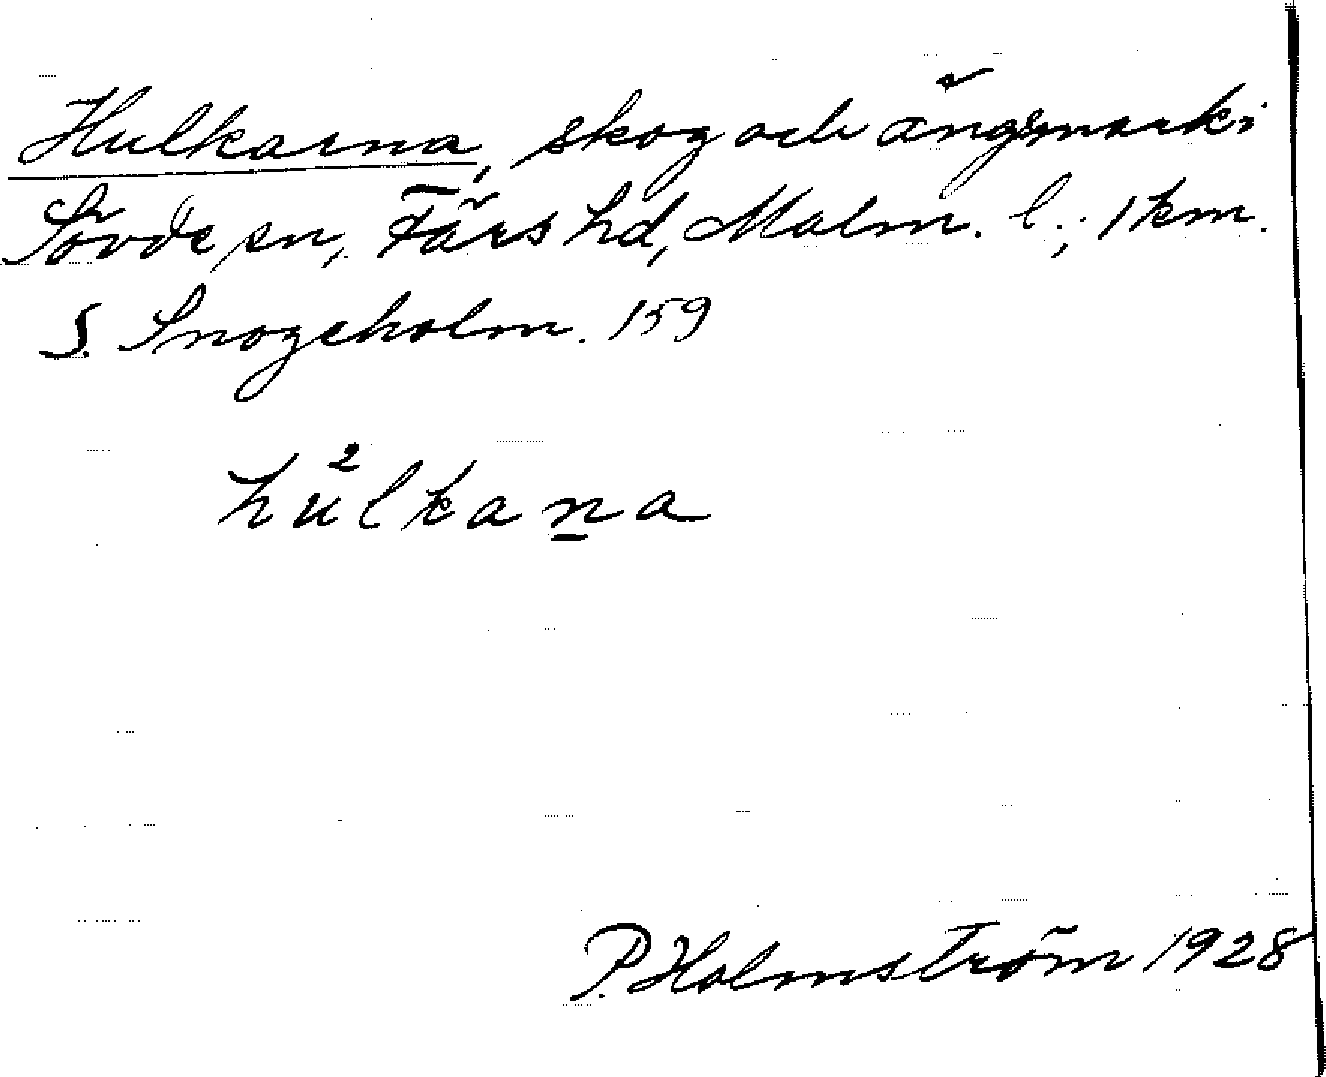 Hulkarna, skog och ängsmark i
Sövde sn, Färs hd, Malm. l.; 1 km.
S. Snogeholm. 159
hu²lkana̲
P. Holmström 1928